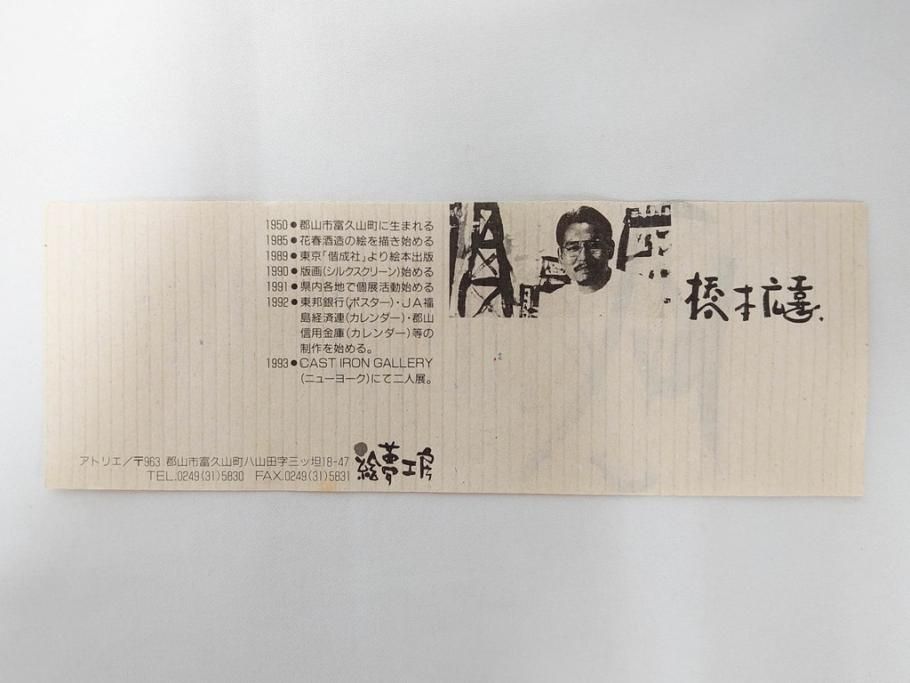 1950●郡山市富久山町に生まれる
1985●花春酒造の絵を描き始める
1989●東京「偕成社」より絵本出版
1990●版画(シルクスクリーン)始める
1991●県内各地で個展活動始める
1992●東邦銀行(ポスター)・JA福
島経済連(カレンダー)・郡山
信用金庫(カレンダー)等の
制作を始める。
1993●CAST IRON GALLERY
(ニューヨーク)にて二人展。
橋本広喜.
アトリエ/〒963 郡山市富久山町八山田字三ッ坦18-47
TEL.0249(31)5830 FAX.0249(31)5831
絵夢工房